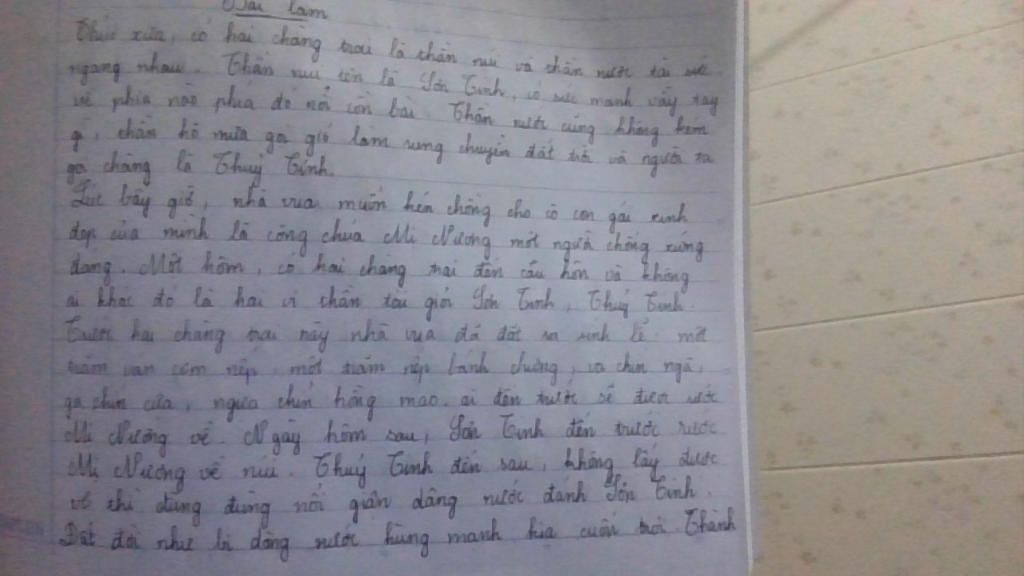 Bài làm
Thuở xưa, có hai chàng trai là thần núi và thần nước tài sức
ngang nhau. Thần núi tên là Sơn Tinh, có sức mạnh vẫy tay
về phía nào phía đó nổi cồn bãi. Thần nước cũng không kém
gì, thần hô mưa gọi gió làm rung chuyển đất trời và người ta
gọi chàng là Thuỷ Tinh.
Lúc bấy giờ, nhà vua muốn kén chồng cho cô con gái xinh
đẹp của mình là công chúa Mị Nương một người chồng xứng
đáng. Một hôm, có hai chàng trai đến cầu hôn và không
ai khác đó là hai vị thần tài giỏi Sơn Tinh, Thuỷ Tinh.
Trước hai chàng trai này nhà vua đã đặt ra sính lễ một
trăm ván cơm nếp, một trăm nệp bánh chưng, và chín ngà,
gà chín cựa, ngựa chín hồng mao. ai đến trước sẽ được rước
Mị Nương về. Ngày hôm sau, Sơn Tinh đến trước rước
Mị Nương về núi. Thuỷ Tinh đến sau, không lấy được
vợ thì đùng đùng nổi giận dâng nước đánh Sơn Tinh.
Đất đai như bị dòng nước hùng mạnh kia cuốn trôi Thành